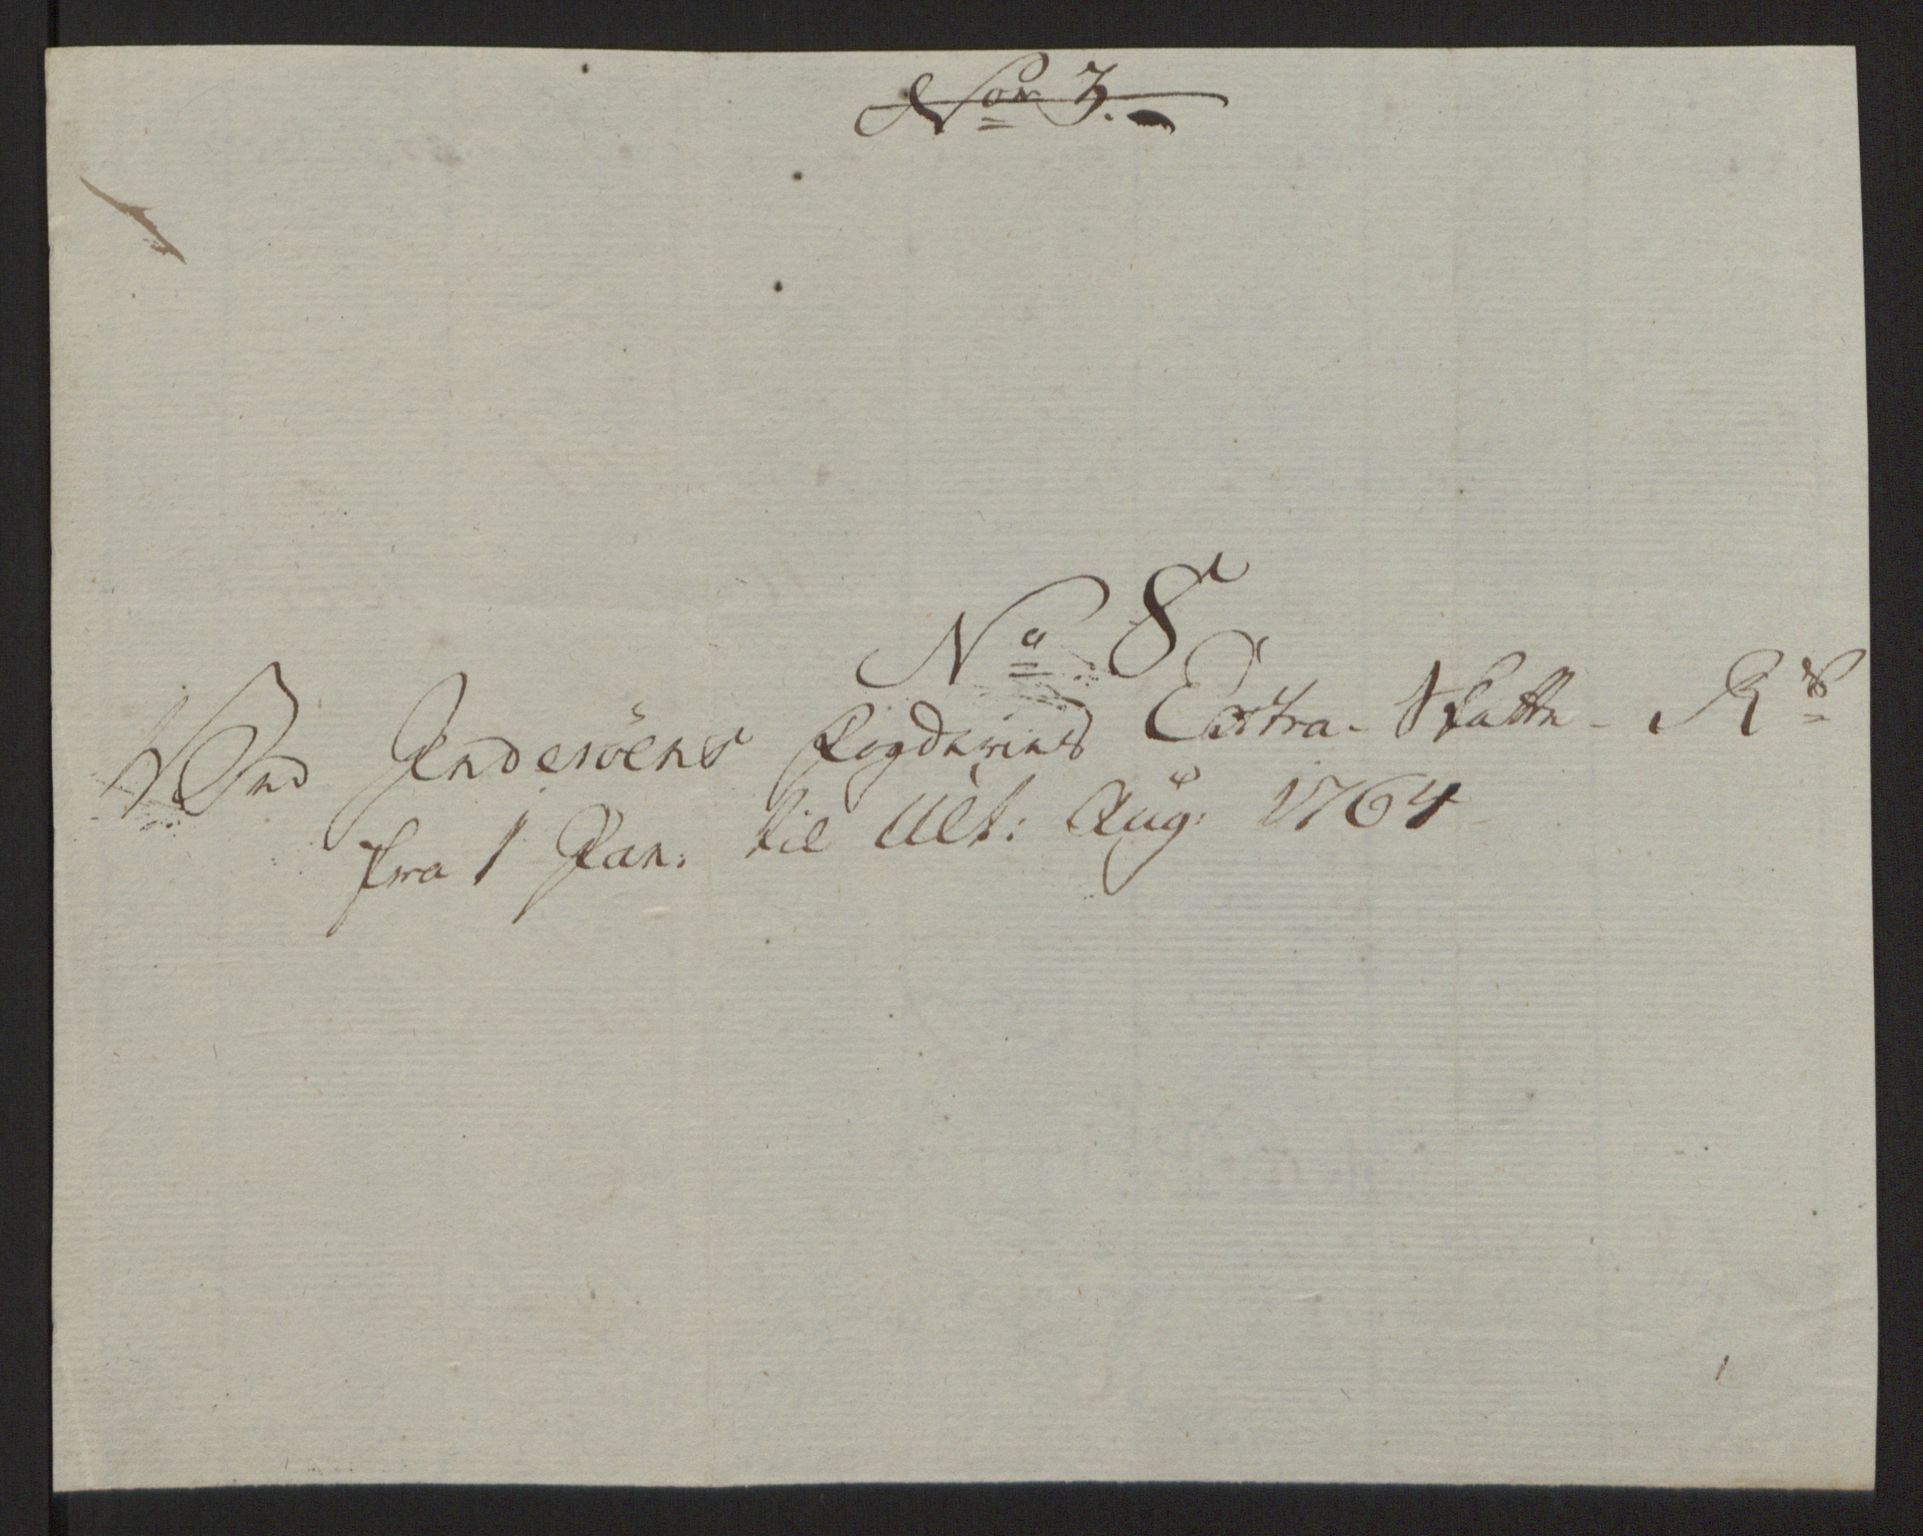 Nor 3.
No 8
Ved Inderöens Fogderies Extra-Skatte-R
fra 1 Jan: til Ult: Aug: 1764